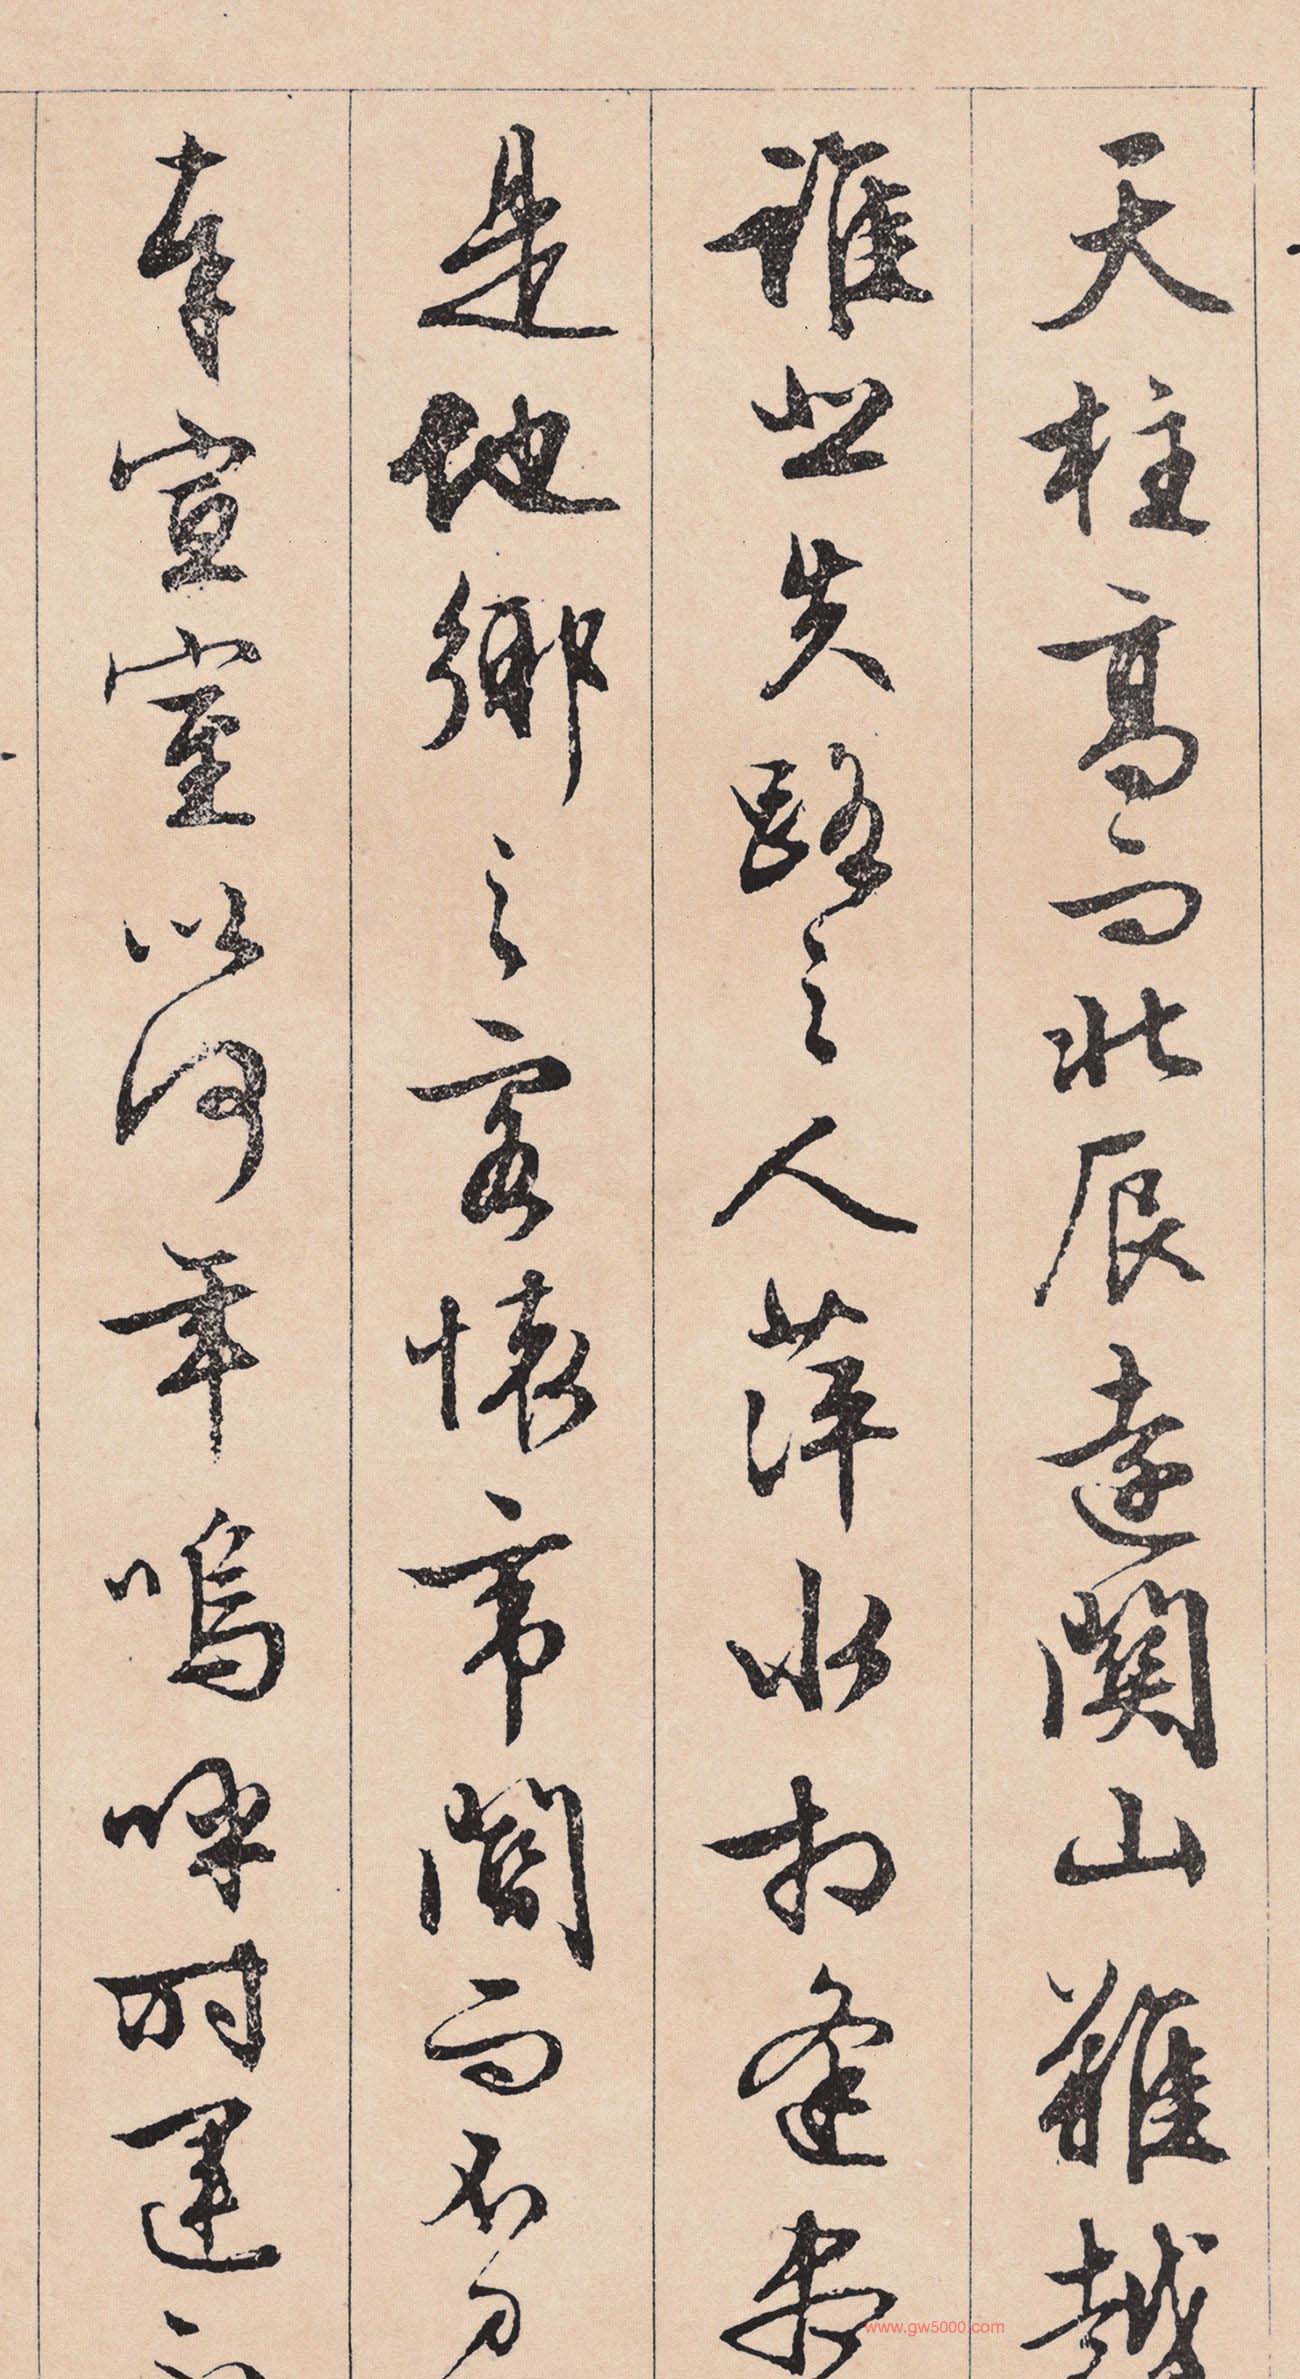 天柱高而北辰遠關山難越
誰悲失路之人萍水相逢盡
是他鄉之客懷帝閽而不
奉宣室以何年嗚呼時運
www.gw5000.com